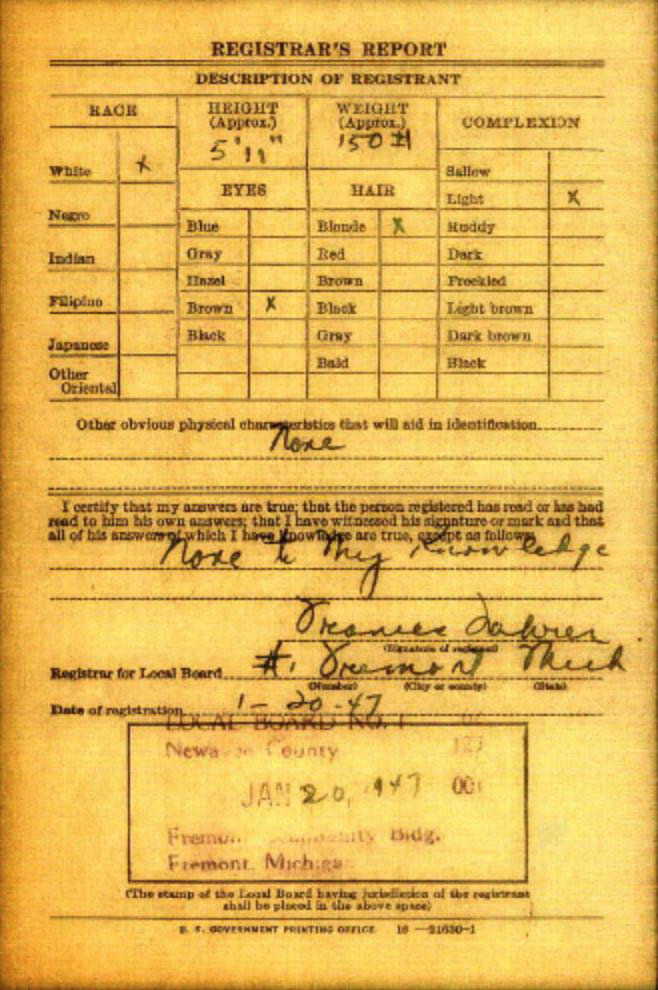 REGISTRAR'S REPORT
DESCRIPTION OF REGISTRANT
RACE
HEIGHT
(Approx.)
WEIGHT
(Approx.)
COMPLEXION
5' 11"
150 #
White x
Sallow
EYES
HAIR
Light x
Negro
Blue
Blonde x
Ruddy
Indian
Gray
Red
Dark
Hazel
Brown
Freckled
Filipino
Brown x
Black
Light brown
Japanese
Black
Gray
Dark brown
Other
Oriental
Bald
Black
Other obvious physical characteristics that will aid in identification
None
I certify that my answers are true; that the person registered has read or has had
read to him his own answers; that I have witnessed his signature or mark and that
all of his answers of which I have knowledge are true, except as follows:
None to My Knowledge
Frances
(Signature of registrar)
Registrar for Local Board #1 Fremont Mich
(Number) (City or county) (State)
Date of registration 1-20-47
LOCAL BOARD NO. 1
County 127
JAN 20, 1947 001
Bldg.
Fremont, Michigan
(The stamp of the Local Board having jurisdiction of the registrant
shall be placed in the above space)
U. S. GOVERNMENT PRINTING OFFICE 16—21630-1